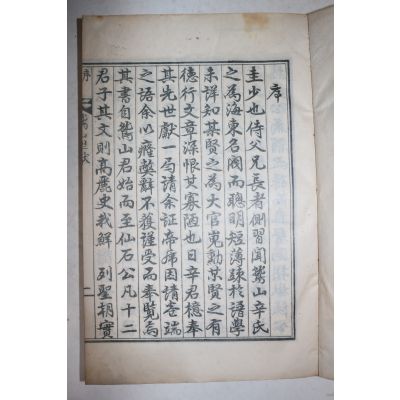 序
圭少也侍父兄長者側習聞鷲山辛氏
之為海東名閥而聰明短薄踈於譜學
未詳知某賢之為大官嵬勳某賢之有
德行文章深恨其寡陋也日辛君檍奉
其先世獻一局請余証帝虎因請卷端
之語余以癃獘辭不獲謹受而奉覽焉
其書自鷲山君始而至仙石公凡十二
君子其文則高麗史我鮮 列聖朝實
序
二